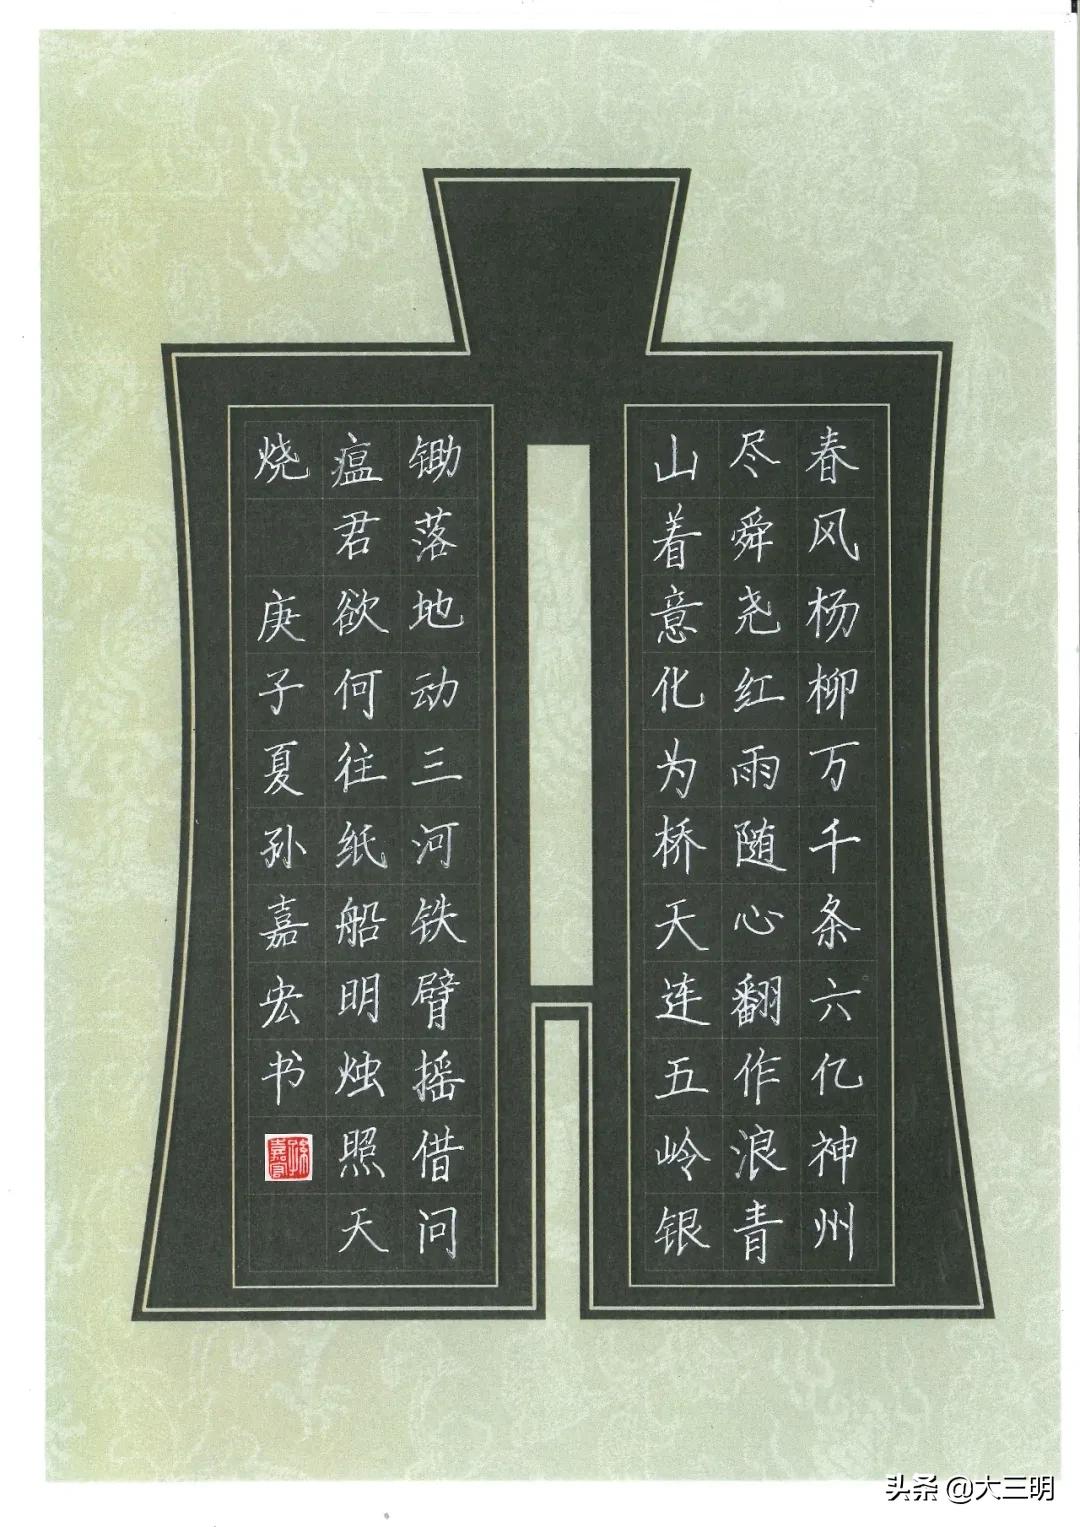 春风杨柳万千条六亿神州
尽舜尧红雨随心翻作浪青
山着意化为桥天连五岭银
锄落地动三河铁臂摇借问
瘟君欲何往纸船明烛照天
烧
庚子夏孙嘉宏书
头条 @大三明